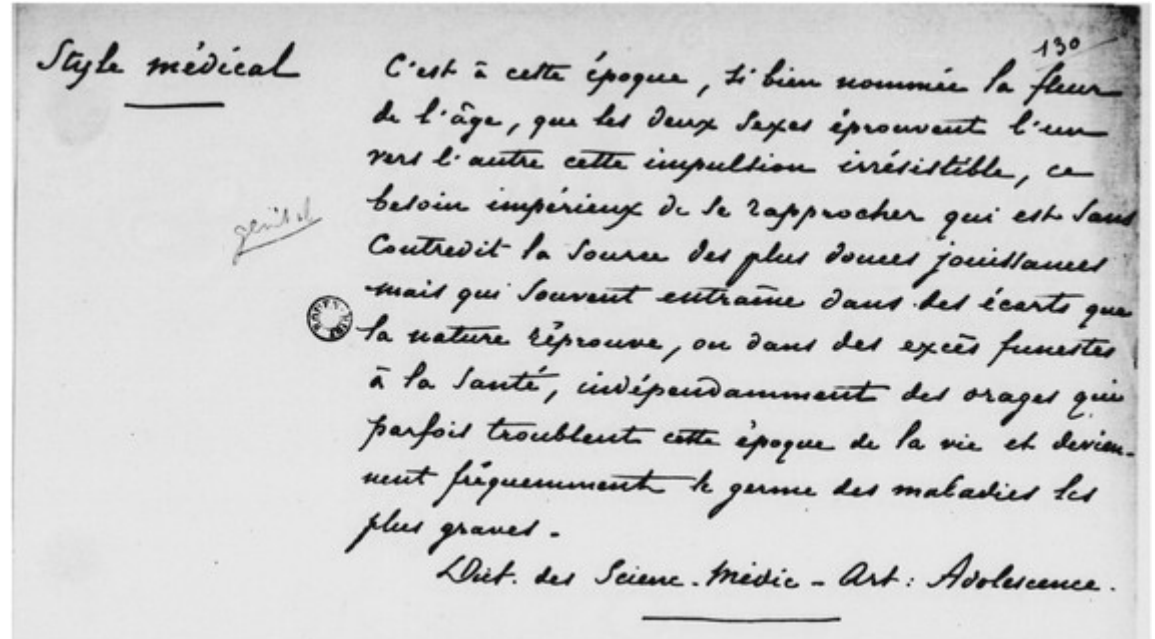 130
Style médical
C'est à cette époque, si bien nommée la fleur
de l'âge, que les deux sexes éprouvent l'un
vers l'autre cette impulsion irrésistible, ce
besoin impérieux de se rapprocher qui est sans
contredit la source des plus douces jouissances
mais qui souvent entraîne dans des écarts que
la nature réprouve, ou dans des excès funestes
à la santé, indépendamment des orages qui
parfois troublent cette époque de la vie et devien-
nent fréquemment le germe des maladies les
plus graves.
Dict. des Scienc. Médic - Art : Adolescence.
génital